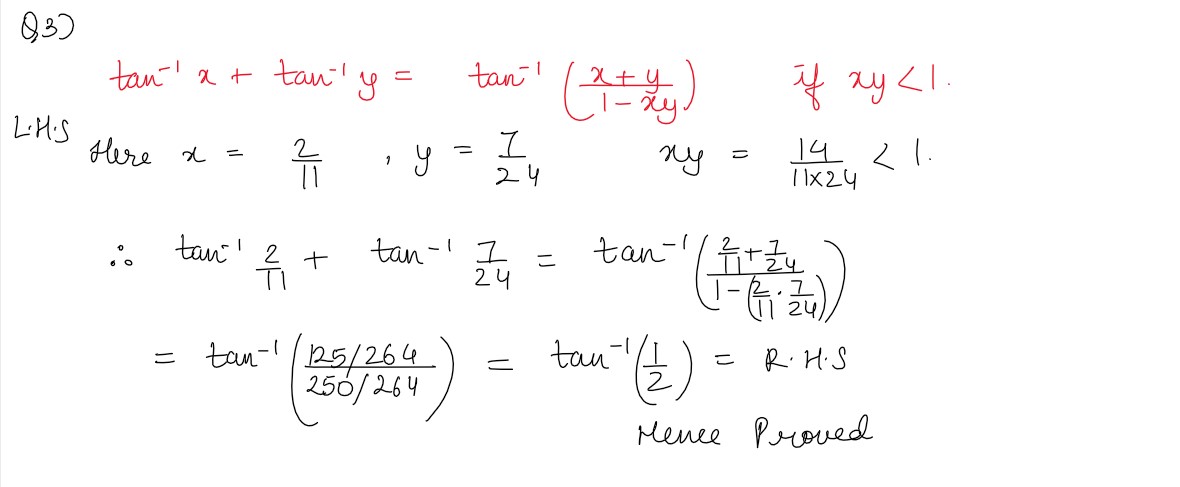 Q3)
tan⁻¹ x + tan⁻¹ y = tan⁻¹ ((x+y)/(1-xy)) if xy < 1.
L.H.S
Here x = 2/11 , y = 7/24 xy = 14/(11×24) < 1.
∴ tan⁻¹ 2/11 + tan⁻¹ 7/24 = tan⁻¹ ((2/11 + 7/24)/(1-(2/11 · 7/24)))
= tan⁻¹ ((125/264)/(250/264)) = tan⁻¹ (1/2) = R.H.S
Hence Proved